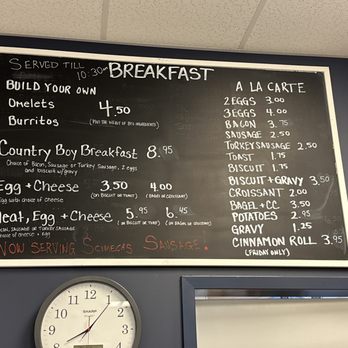 SERVED TILL 10:30am BREAKFAST
BUILD YOUR OWN
Omelets 4.50
Burritos
Country Boy Breakfast 8.95
Choice of Bacon, Sausage or Turkey Sausage, 2 eggs
and biscuit w/gravy
Egg + Cheese 3.50 4.00
Egg with choice of cheese (ON BISCUIT OR TOAST) (BAGEL OR CROISSANT)
Meat, Egg + Cheese 5.95 6.45
SAUSAGE OR TURKEY SAUSAGE (ON BISCUIT OR TOAST) (ON BAGEL OR CROISSANT)
choice of cheese + Egg
NOW SERVING SAUSAGE!
A LA CARTE
2 EGGS 3.00
3 EGGS 4.00
BACON 3.75
SAUSAGE 2.50
TURKEY SAUSAGE 2.50
TOAST 1.75
BISCUIT 1.75
BISCUIT + GRAVY 3.50
CROISSANT 2.00
BAGEL + CC. 3.50
POTATOES 2.95
GRAVY 1.25
CINNAMON ROLL 3.95
(FRIDAY ONLY)
SHARP